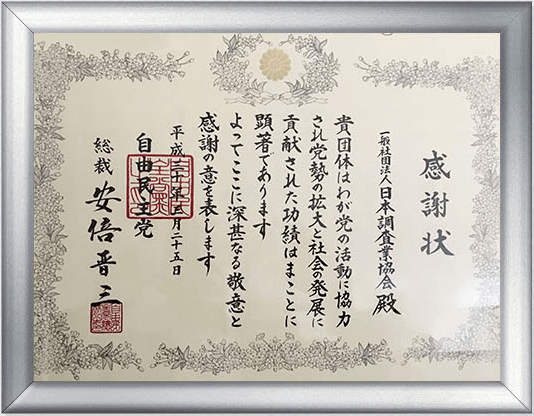 感謝状
一般社団法人日本調査業協会殿
貴団体はわが党の活動に協力
され党勢の拡大と社会の発展に
貢献された功績はまことに
顕著であります
よってここに深甚なる敬意と
感謝の意を表します
平成三十年三月二十五日
自由民主党
総裁 安倍晋三